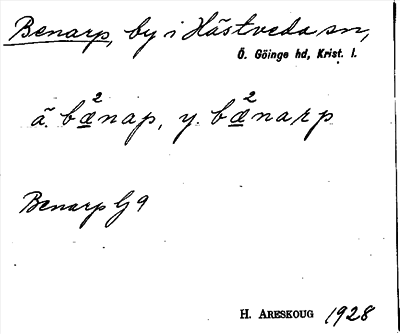 Benarp, by i Hästveda sn,
Ö. Göinge hd, Krist. l.
ä. bæ²nap, y. bæ²narp
Benarp G 9
H. ARESKOUG 1928